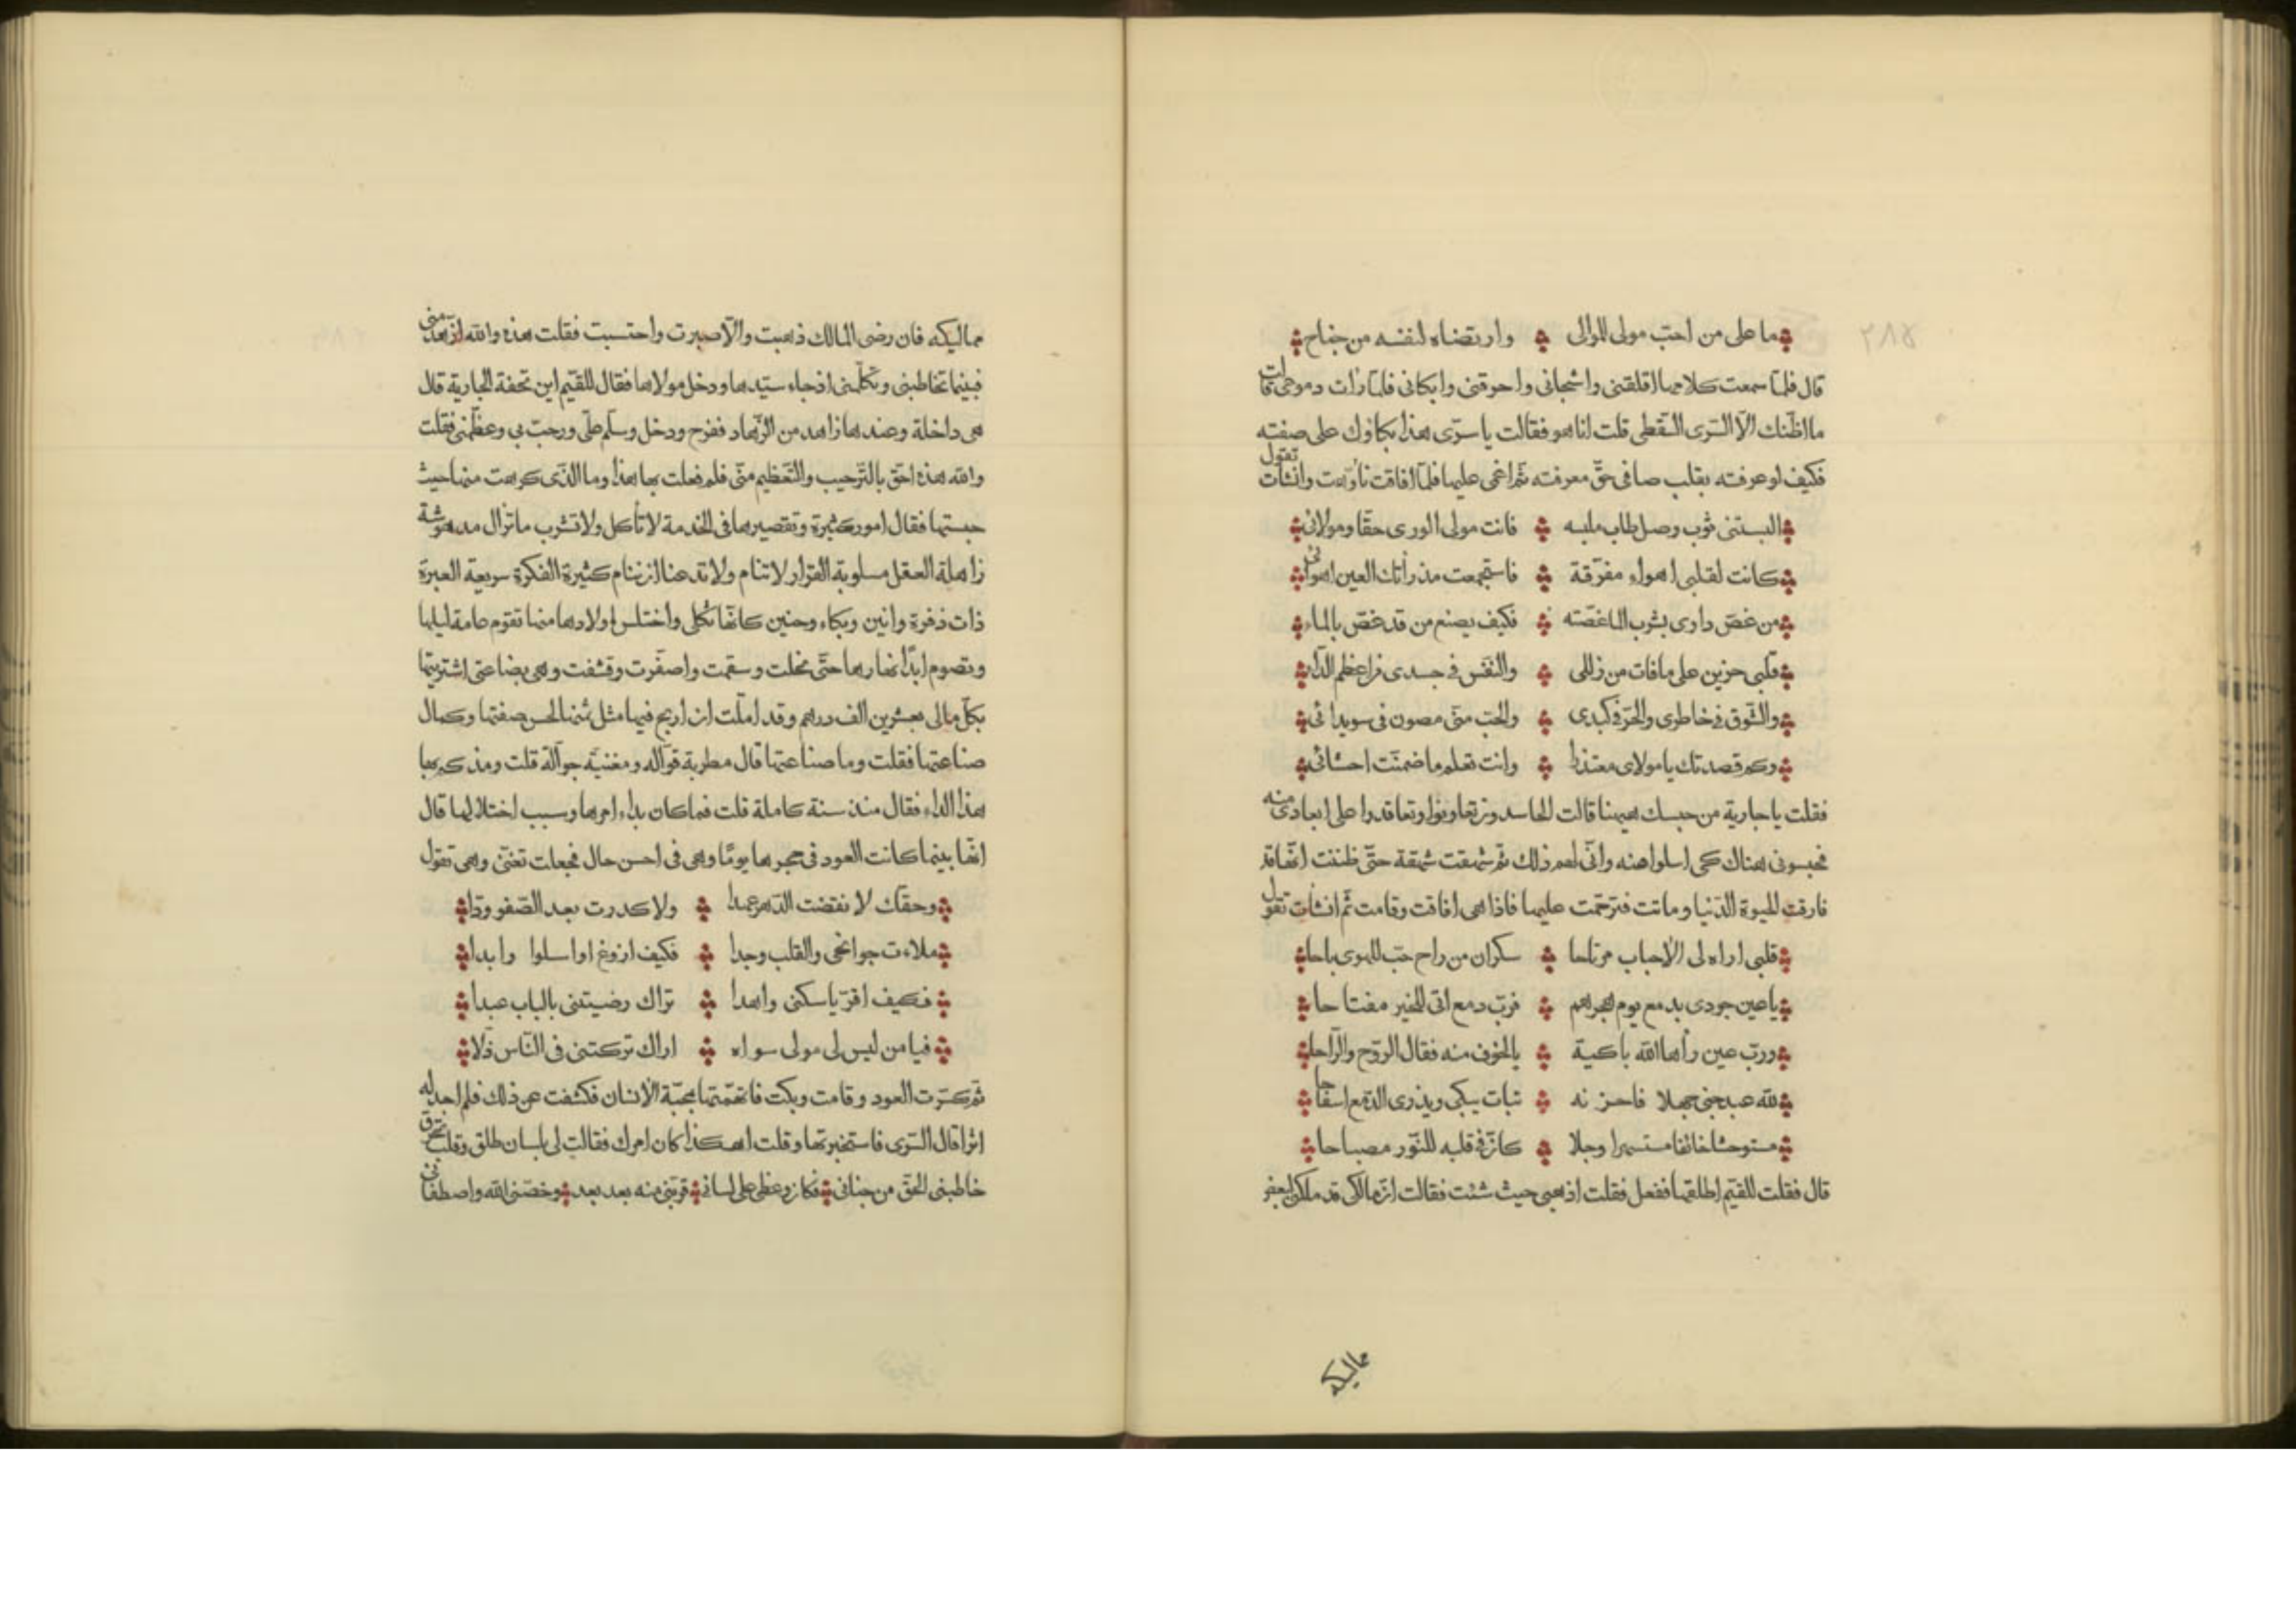 ٢٨٥
ما على من احبّ مولى الموالى وارتضاه لنفسه من جناح
قال فلمّا سمعت كلامها اقلقنى واشجانى واحرقنى وابكانى فلمّا رات دموعى قالت
ما اظنّك الّا السّرى السّقطى قلت انا هو فقالت يا سرّى هذا بكاؤك على صفته
فكيف لو عرفته بقلب صافى حقّ معرفته ثمّ اغمى عليها فلمّا افاقت تأوّهت وانشأت تقول
البستنى ثوب وصل طاب ملبسه فانت مولى الورى حقّا ومولائى
كانت لقلبى اهواء مفرّقة فاستجمعت مذ رأتك العين اهوائى
من غصّ داوى بشرب الماء غصّته فكيف يصنع من قد غصّ بالماء
قلبى حزين على ما فات من زللى والنّفس فى جسدى من اعظم الدّاء
والشّوق فى خاطرى والحرّ فى كبدى والحبّ منّى مصون فى سويدائى
وكم قصدتك يا مولاى معتذرا وانت تعلم ما ضمّنت احشائى
فقلت يا جارية من حبسك هيهنا قالت الحاسدون تعاونوا وتعاقدوا على ابعادى منه
فحبسونى هناك كى اسلوا عنه وانّى لهم ذلك ثمّ شهقت شهقة حتّى ظننت انّها قد
فارقت الحيوة الدّنيا وماتت فترحّمت عليها فاذا هى افاقت وقامت ثمّ انشأت تقول
قلبى اراه الى الاحباب مرتاحا سكران من راح حبّ الهوى باحا
يا عين جودى بدمع يوم هجرهم فربّ دمع اتى للخير مفتاحا
وربّ عين رأها الله باكية بالخوف منه فقال الروح والرّاحا
لله عبد جنى جهلا فاحزنه فبات يبكى ويذرى الدّمع اسفاحا
مستوحشا خائفا مستسهرا وجلا كانّ فى قلبه للنّور مصباحا
قال فقلت للقيّم اطلقها ففعل فقلت اذهبى حيث شئت فقالت انّ مالكى قد ملكنى لبعض
مماليكه
مماليكه فان رضى المالك ذهبت والّا صبرت واحتسبت فقلت هذه والله ازهد منّى
فبينما تخاطبنى وتكلّمنى اذ جاء سيّدها ودخل مولاها فقال للقيّم اين تحفة الجارية قال
هى داخلة وعندها زاهد من الزّهاد ففرح ودخل وسلّم علىّ ورحبّ بى وعظّمنى فقلت
والله هذه احقّ بالتّرحيب والتّعظيم منّى فلم فعلت بها هذا وما الّذى كرهت منها حيث
حبستها فقال امور كثيرة وتقصيرها فى الخدمة لا تأكل ولا تشرب ما تزال مدهوشة
زاهلة العقل مسلوبة القرار لا تنام ولا تدعنا ان ننام كثيرة الفكرة سريعة العبرة
ذات زفرة وانين وبكاء وحنين كانّها ثكلى واختلس اولادها منها تقوم عامة ليلها
وتصوم ابدًا نهارها حتّى نحلت وسقمت واصفّرت وقشفت وهى بضاعتى اشتريتها
بكلّ مالى بعشرين الف درهم وقد املّت ان اربح فيها مثل ثمنها لحسن صفتها وكمال
صناعتها فقلت وما صناعتها قال مطربة قوّاله ومغنيّة جوّالة قلت ومذ كم بها
هذا الداء فقال منذ سنة كاملة قلت فما كان بداء امرها وسبب اختلالها قال
انّها بينما كانت العود فى حجرها يومًا وهى فى احسن حال فجعلت تغنّى وهى تقول
وحقّك لا نقضت الدّهر عهدا ولا كدرت بعد الصّفو ودّا
ملاءت جوانحى والقلب وجدا فكيف ازوغ او اسلوا وابدا
فكيف اقرّ يا سكنى واهدا تراك رضيتنى بالباب عبدا
فيا من ليس لى مولى سواه اراك تركتنى فى النّاس ذلّا
ثمّ كسّرت العود وقامت وبكت فاتهمّتها بمحبّة الانسان فكشفت عن ذلك فلم اجد له
اثرا قال السّرى فاستخبرتها وقلت اهكذا كان امرك فقالت لى بلسان طلق وقلب محترق
خاطبنى الحقّ من جنانى فكان وعظى على لسانى قرّبنى منه بعد بعد وخصّنى الله واصطفانى